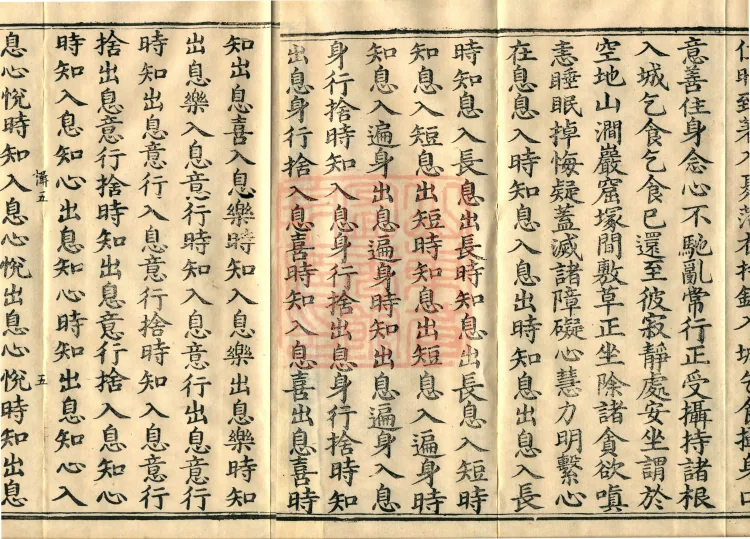 意善住身念心不馳亂常行正受攝持諸根
入城乞食乞食已還至彼寂靜處安坐謂於
空地山澗巖窟塚間敷草正坐除諸貪欲嗔
恚睡眠掉悔疑蓋滅諸障礙心慧力明繫心
在息息入時知息入息出時知息出息入長
時知息入長息出長時知息出長息入短時
知息入短息出短時知息出短息入遍身時
知息入遍身出息遍身時知出息遍身入息
身行捨時知入息身行捨出息身行捨時知
出息身行捨入息喜時知入息喜出息喜時
知出息喜入息樂時知入息樂出息樂時知
出息樂入息意行時知入息意行出息意行
時知出息意行入息意行捨時知入息意行
捨出息意行捨時知出息意行捨入息知心
時知入息知心出息知心時知出息知心入
五
息心悅時知入息心悅出息心悅時知出息